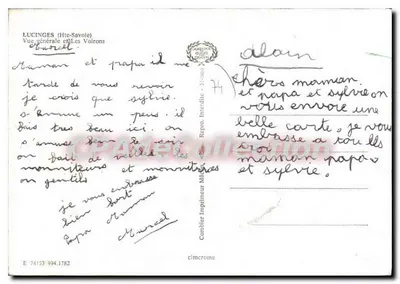 LUCINGES (Hte-Savoie)
Vue générale et Les Voirons
Marcel
Maman et papa il me
tarde de vous revoir
je crois que sylvie
s'ennuie un peu. il
fais très beau ici. on
s'amuse
on fait de belles
moniteurs et monitrices
on gentils
je vous embrasse
bien fort
papa Maman
Marcel
E 74153 994.1782
Combier Imprimeur Repro. Interdite
74
CIM
alain
chers maman
et papa et sylvie on
vous envoie une
belle carte. je vous
embrasse a tou les
troi
maman papa
et sylvie.